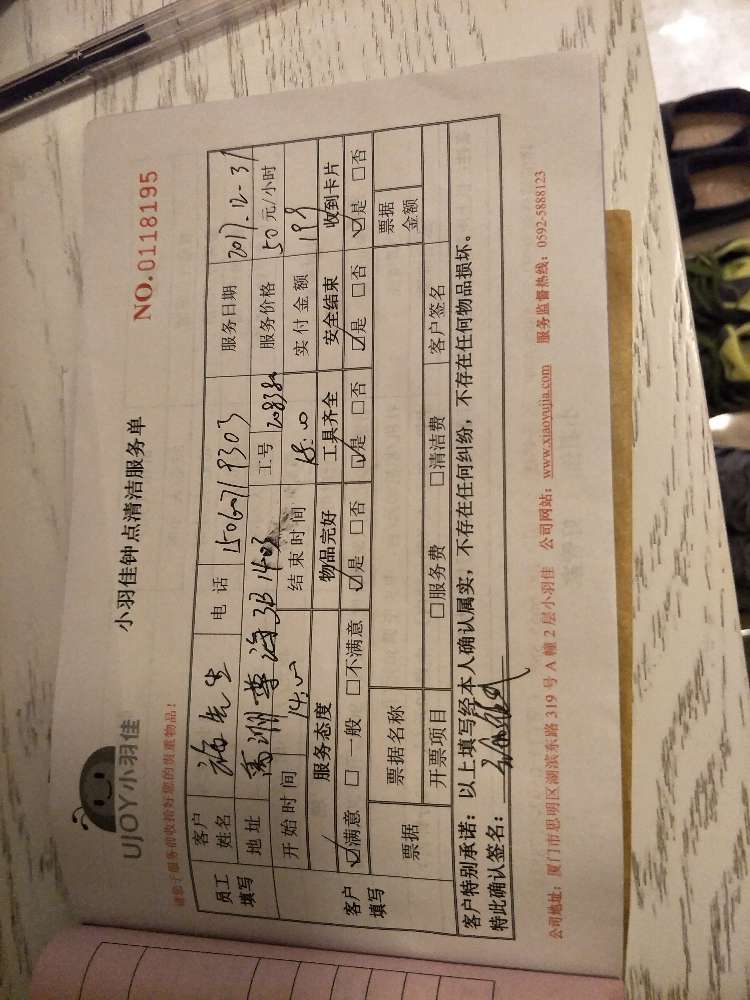 UJOY小羽佳
小羽佳钟点清洁服务单
NO.0118195
请您于服务前收拾好您的贵重物品!
员工填写
客户姓名 施先生 电话 服务日期 2017.12-31
地址 工号 服务价格 50元/小时
开始时间 14:00 结束时间 18:00 实付金额 199
客户填写
服务态度 物品完好 工具齐全 安全结束 收到卡片
☑满意 □一般 □不满意 ☑是 □否 ☑是 □否 ☑是 □否 ☑是 □否
票据 票据名称 票据金额
开票项目 □服务费 □清洁费 客户签名
客户特别承诺:以上填写经本人确认属实,不存在任何纠纷,不存在任何物品损坏。
特此确认签名:
公司地址:厦门市思明区湖滨东路319号A幢2层小羽佳 公司网站:www.xiaoyujia.com 服务监督热线:0592-5888123